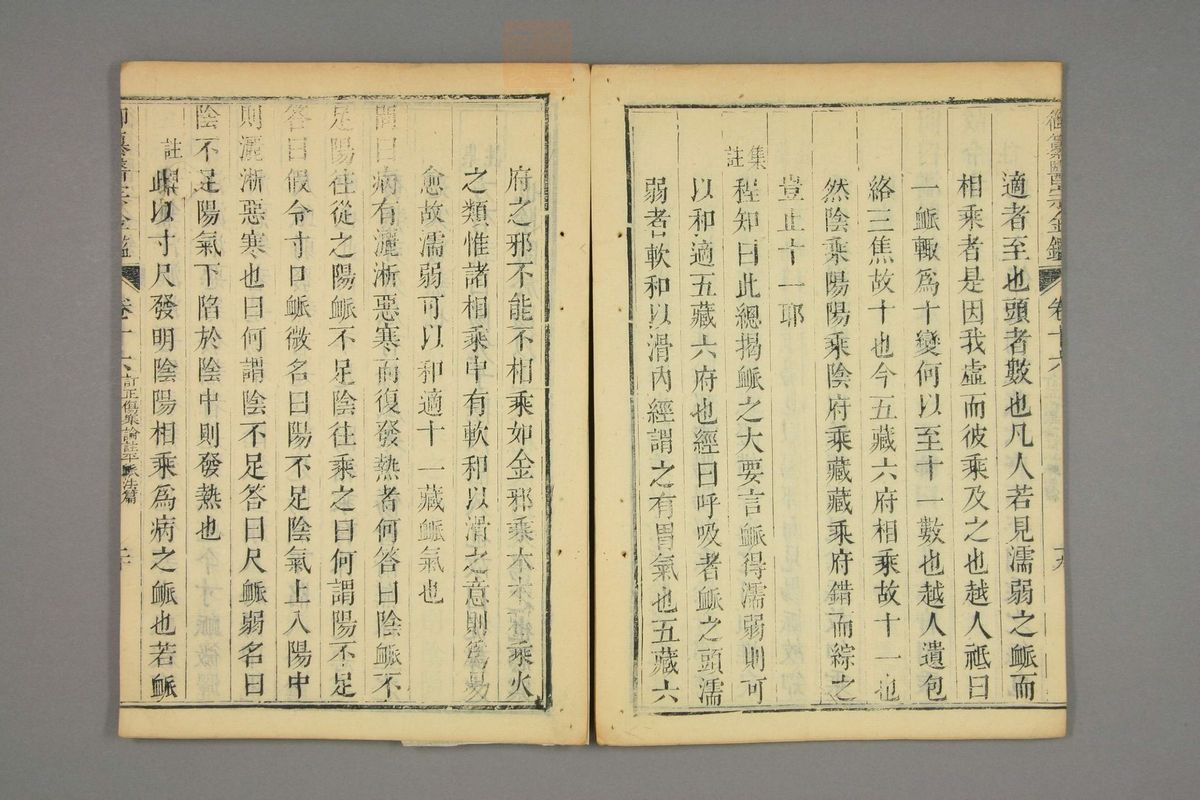 御纂醫宗金鑑 卷十六 十九
適者至也頭者數也凡人若見濡弱之䘑而
相乘者是因我虛而彼乘及之也越人祗曰
一䘑輙爲十變何以至十一數也越人遺包
絡三焦故十也今五藏六府相乘故十一也
然陰乘陽陽乘陰府乘藏藏乘府錯而綜之
豈止十一耶
集註程知曰此總揭䘑之大要言䘑得濡弱則可
以和適五藏六府也經曰呼吸者䘑之頭濡
弱者軟和以滑內經謂之有胃氣也五藏六
府之邪不能不相乘如金邪乘木木邪乘火
之類惟諸相乘中有軟和以滑之意則爲易
愈故濡弱可以和適十一藏䘑氣也
問曰病有灑淅惡寒而復發熱者何答曰陰䘑不
足陽往從之陽䘑不足陰往乘之曰何謂陽不足
答曰假令寸口䘑微名曰陽不足陰氣上入陽中
則灑淅惡寒也曰何謂陰不足答曰尺䘑弱名曰
陰不足陽氣下陷於陰中則發熱也
註此以寸尺發明陰陽相乘爲病之䘑也若䘑
御纂醫宗金鑑 卷十六 訂正傷寒論註平䘑法篇 二十